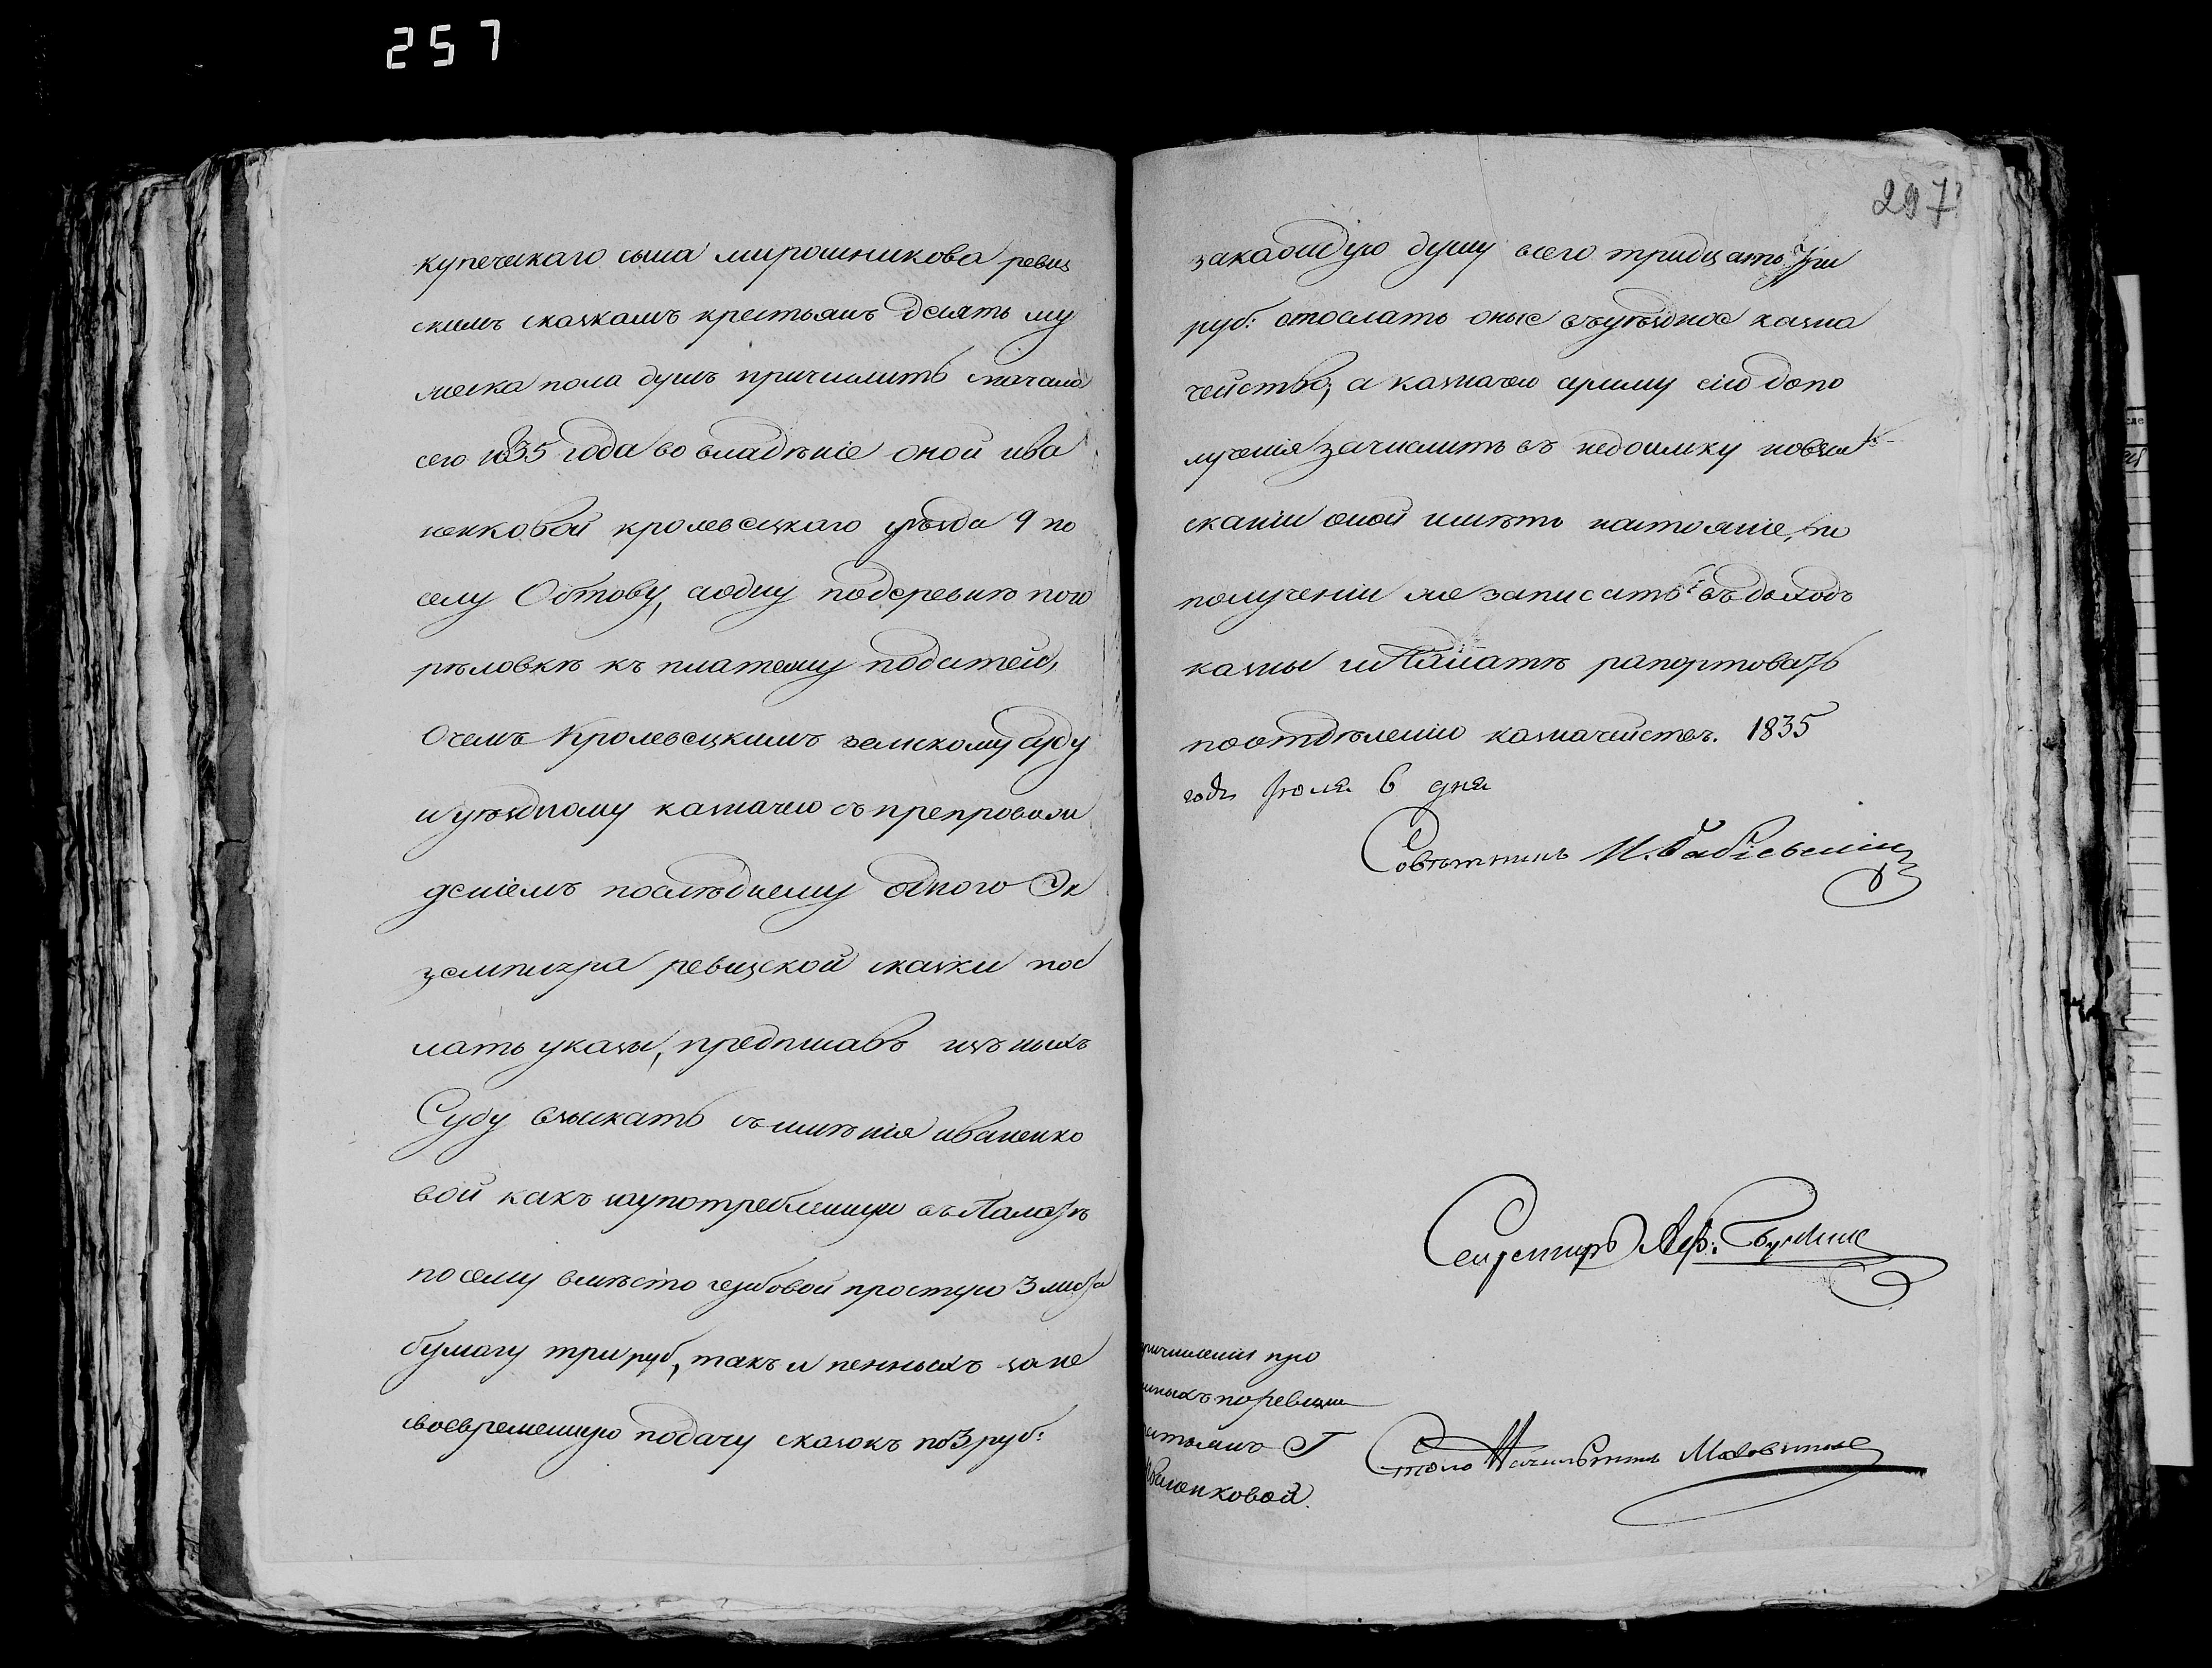 257
купеческаго сына мирошникова ревиз
скимъ сказкамъ крестьянъ десять му
жеска пола душъ причислить сначала
сего 1835 года во владѣніе оной ива
ненковой кролевецкаго уѣзда 9 по
селу Обтову, аодну подеревнѣ пого
рѣловкѣ къ платежу податей,
Очемъ Кролевецкимъ земскому суду
и уѣздному казначею съ препровож
деніемъ послѣднему одного Эк
земпляра ревизской сказки пос
лать указы, предписавъ изъ ныхъ
Суду взыскать съ имѣнія иваненко
вой какъ заупотребленную въ Палатѣ
посему вмѣсто гербовой простую 3 листа
бумагу три руб, такъ и пенныхъ зане
своевременную подачу сказокъ по 3 руб:
297
закаждую душу всего тридцать три
руб: отослать оные въуѣздное казна
чейство, а казначею сумму сію допо
лученія зачислить въ недоимку повзы
сканіи оной имѣть настояніе, по
полученіи же записать въ доходъ
казны и Палатѣ рапортовать
поотдѣленію казначействъ. 1835
года Іюля 6 дня
Совѣтникъ И.
Секретарь
причисленіи про
нныхъ поревизіи
естьянъ Г
Иваненковой.
Столоначальникъ